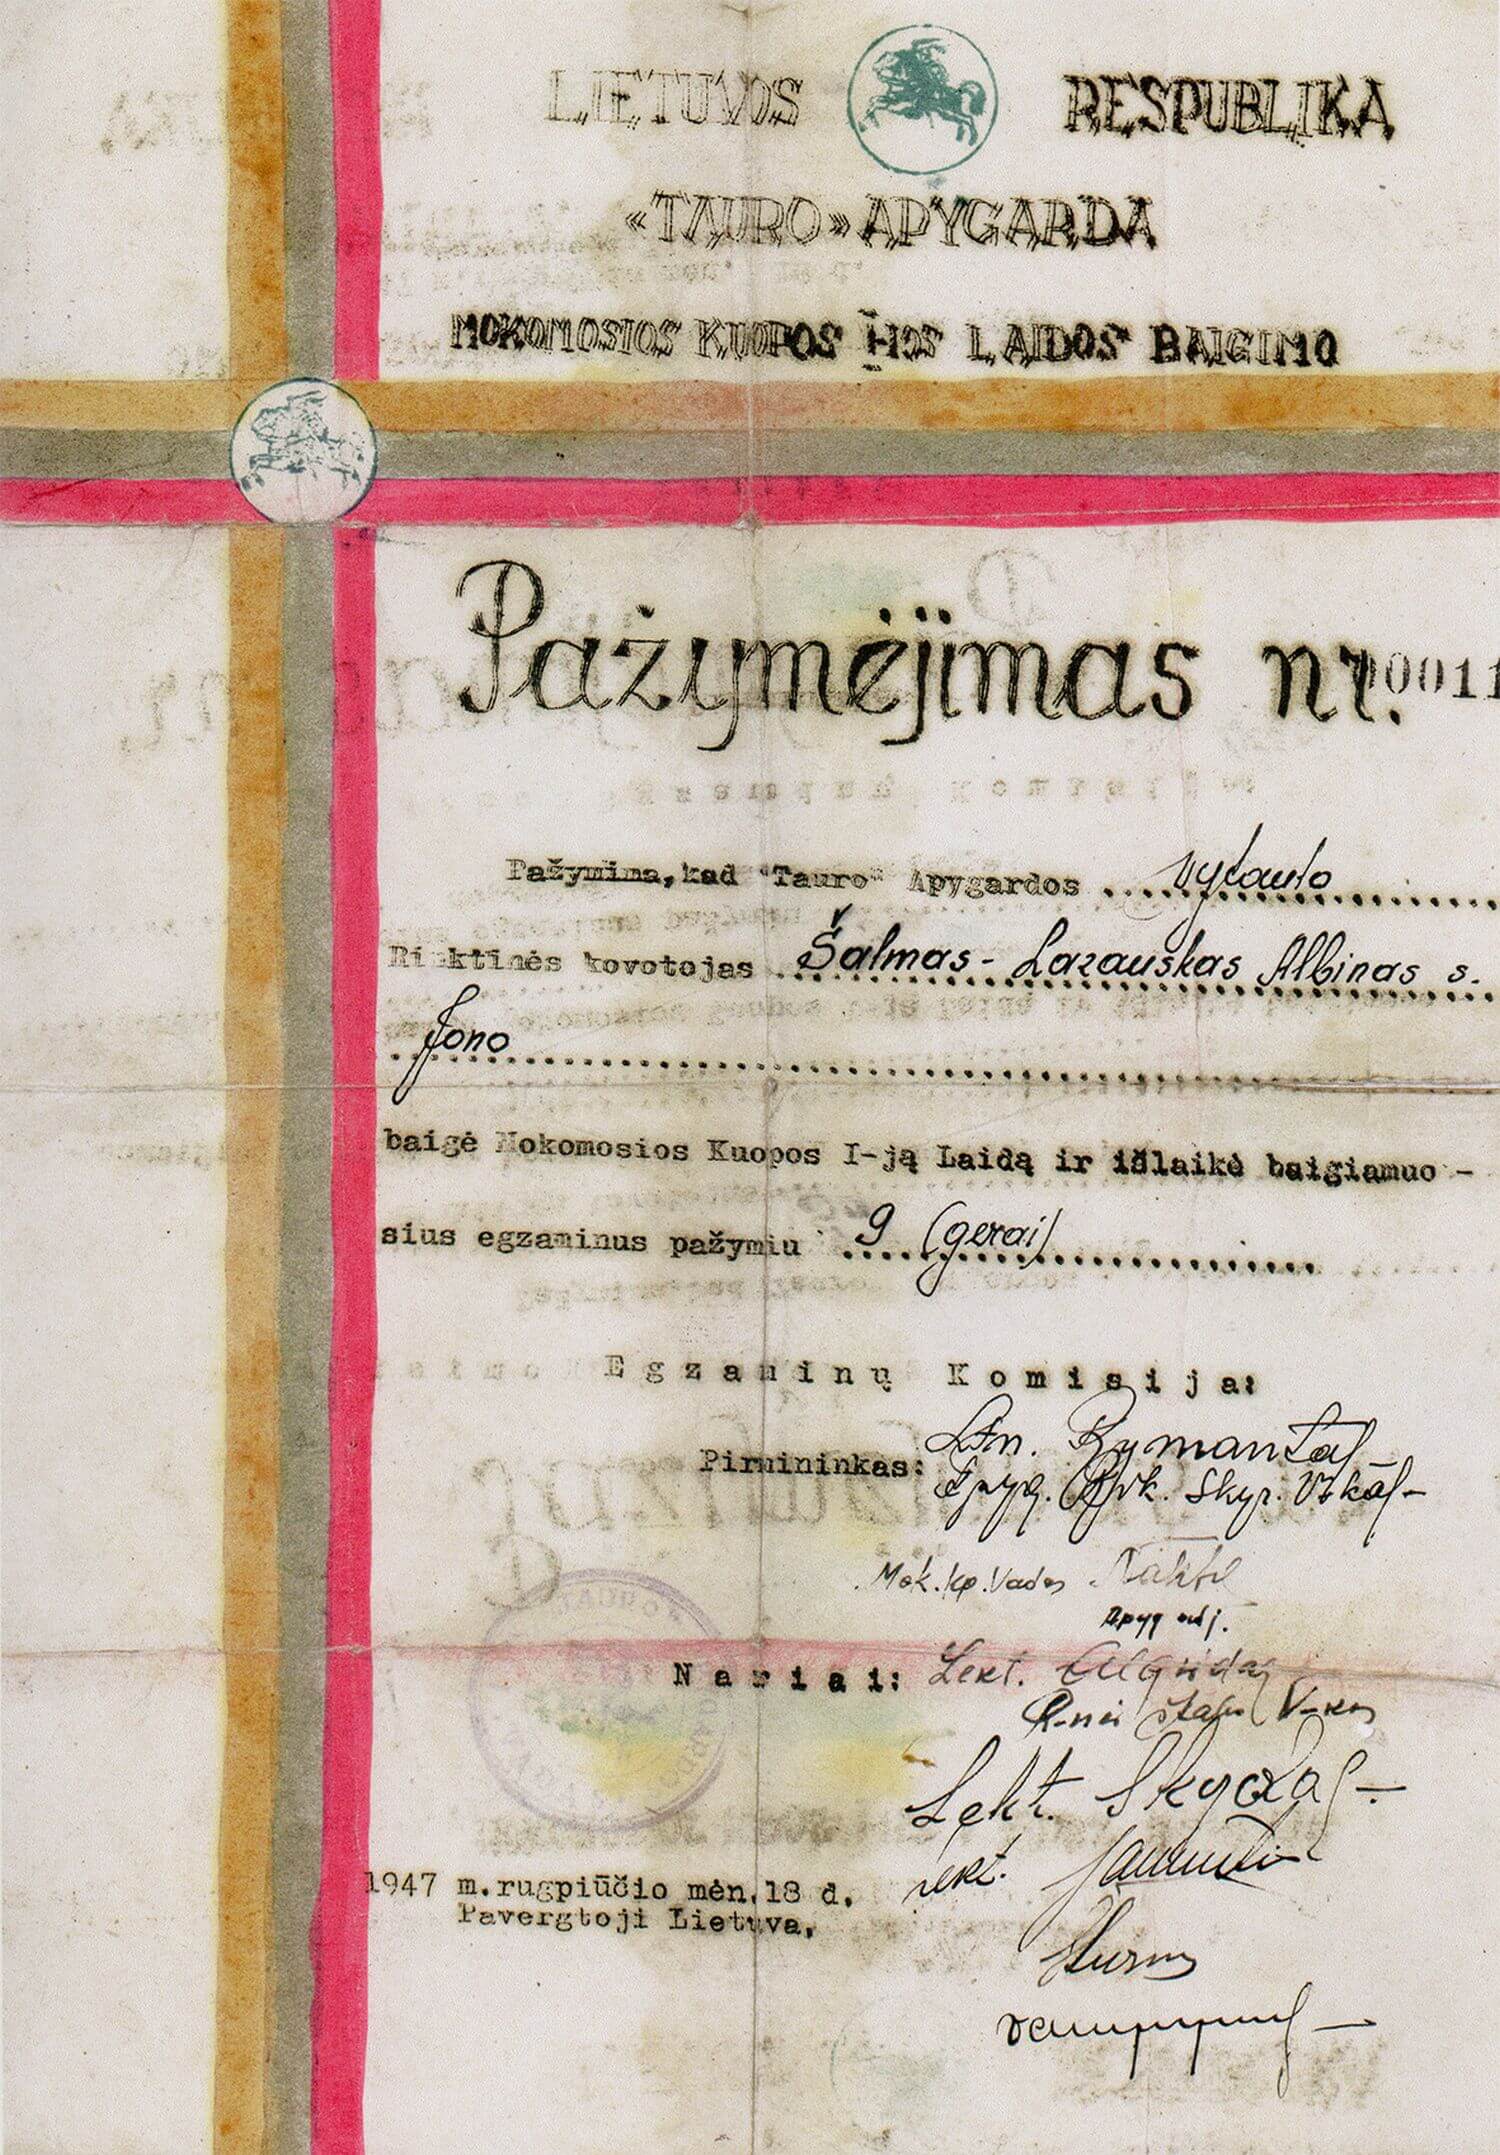 LIETUVOS RESPUBLIKA
«TAURO» APYGARDA
MOKOMOSIOS KUOPOS I-IOS LAIDOS BAIGIMO
Pažymėjimas nr. 00011
Pažymima, kad "Tauro" Apygardos Vytauto
Rinktinės kovotojas Šalmas - Lazauskas Albinas s.
Jono
baigė Mokomosios Kuopos I-ją Laidą ir išlaikė baigiamuo -
sius egzaminus pažymiu 9 (gerai)
Egzaminų Komisija:
Ltn. Rymantas
Pirmininkas:
Apyg. Skyr. V-kas
Mok. kp. Vadas
Apyg adj.
Nariai: Lekt. Algirdas
R-nės štabo V-kas
Lekt. Skydas
Lekt.
1947 m. rugpiūčio mėn. 18 d.
Pavergtoji Lietuva,